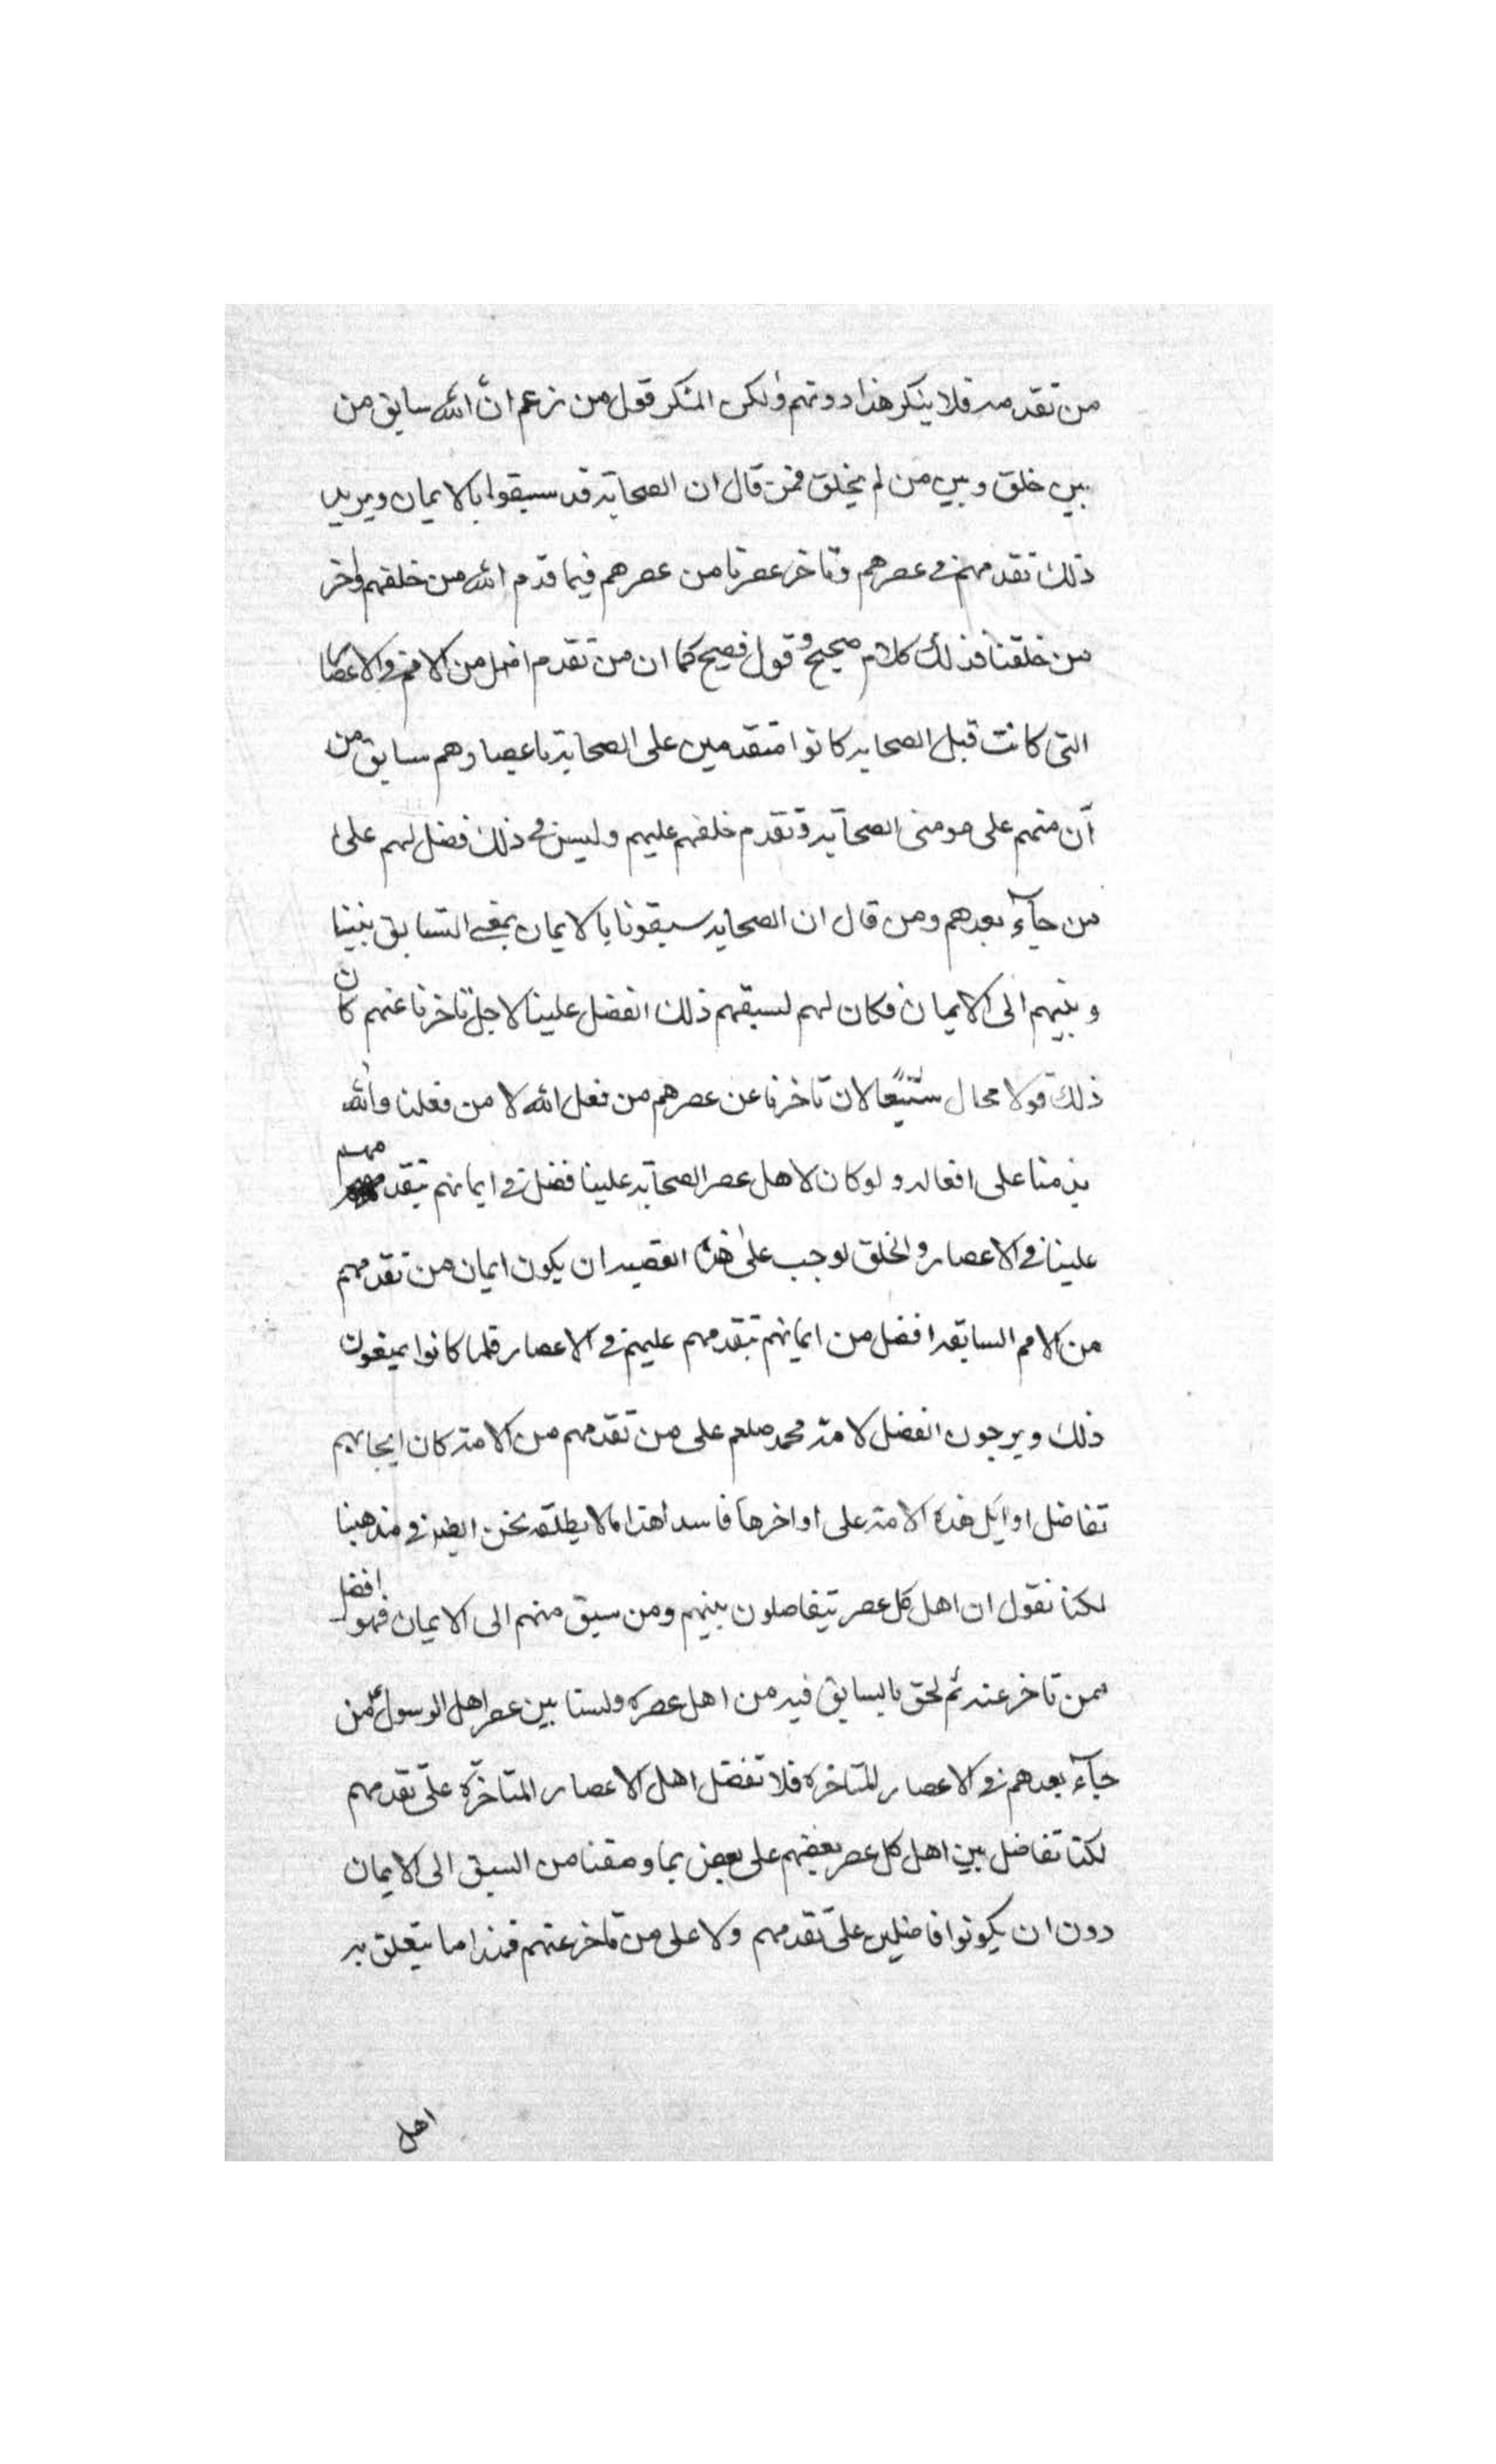 من تقدمه فلا ينكر هذا دونهم ولكن المنكر قول من زعم ان الله سابق من
بين خلق وبين من لم يخلق فمن قال ان الصحابة قد سبقوا بالايمان ويريد
ذلك تقدمهم في عصرهم وتاخر عصرنا من عصرهم فيما قدم الله من خلقهم واخر
من خلقنا فذلك كلام صحيح وقول فصيح كما ان من تقدم من الامم في الاعصار
التي كانت قبل الصحابة كانوا متقدمين على الصحابة باعصارهم سابق من
آن منهم على مومني الصحابة وتقدم خلقهم عليهم وليس في ذلك فضل لهم على
من جآء بعدهم ومن قال ان الصحابة سبقونا بالايمان بمعنى التسابق بيننا
وبينهم الى الايمان فكان لهم لسبقهم ذلك الفضل علينا لاجل تاخرنا عنهم كان
ذلك قولا محال شنيعا لان تاخرنا عن عصرهم من فعل الله لا من فعلنا والله
يذمنا على افعاله ولو كان لاهل عصر الصحابة علينا فضل في ايمانهم بتقدمهم
علينا في الاعصار والخلق لوجب على هذه القصية ان يكون ايمان من تقدمهم
من الامم السابقة افضل من ايمانهم بتقدمهم عليهم في الاعصار فلما كانوا يمنعون
ذلك ويوجبون الفضل لامة محمد صلعم على من تقدمهم من الامة كان ايجابهم
تفاضل اوايل هذه الامة على اواخرها فاسدا هذا ما لا يطلقه نحن ايضا في مذهبنا
لكنا نقول ان اهل كل عصر يتفاضلون بينهم ومن سبق منهم الى الايمان فهو افضل
ممن تاخر عنه ثم لحق بالسابق فيه من اهل عصره ولسنا بين عصر اهل الرسول ع م من
جآء بعدهم في الاعصار المتاخرة فلا تفضل اهل الاعصار المتاخرة على تقدمهم
لكنا تفاضل بين اهل كل عصر بعضهم على بعض بما وصفنا من السبق الى الايمان
دون ان يكونوا فاضلين على تقدمهم ولا على من تاخر عنهم فهذا ما يتعلق به
اهل